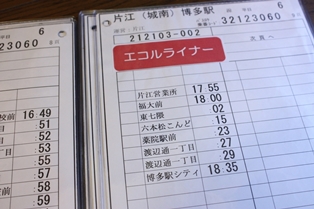 片江（城南）博多駅
6
23060
32123060
212103-002
次頁へ
エコルライナー
片江営業所 17 55
福大前 18 00
東七隈 02
六本松こんど 15
薬院駅前 23
渡辺通一丁目 27
渡辺通一丁目 29
博多駅シティ 18 35
校前 16 49
51
52
丁目 53
55
56
丁目 58
59